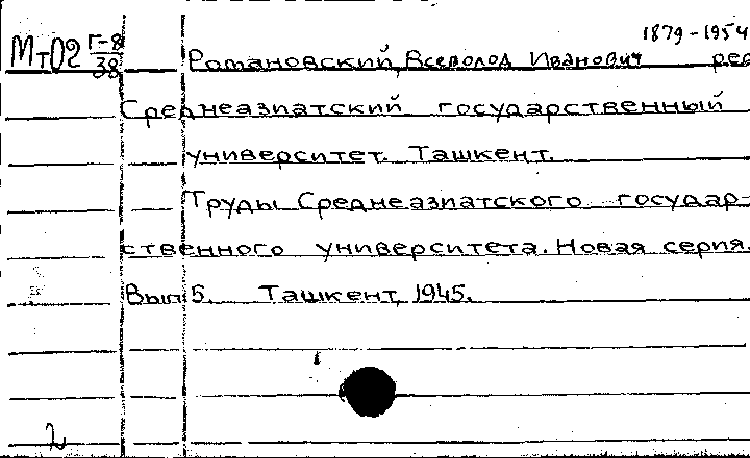 1879-1954
МтО2 Г-8/38 Романовский, Всеволод Иванович ред
Среднеазиатский государственный
университет. Ташкент.
Труды Среднеазиатского государ-
ственного университета. Новая серия.
Вып 5. Ташкент, 1945.
2